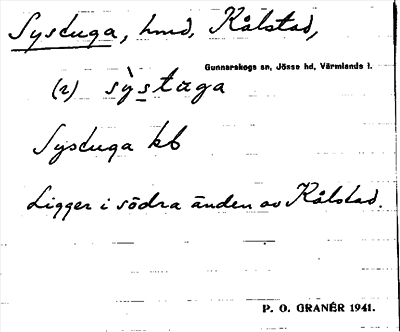 Systuga, hmd, Kålstad,
Gunnarskogs sn, Jösse hd, Värmlands l.
(2) sỳstuga
Systuga kb
Ligger i södra änden av Kålstad.
P. O. GRANÉR 1941.